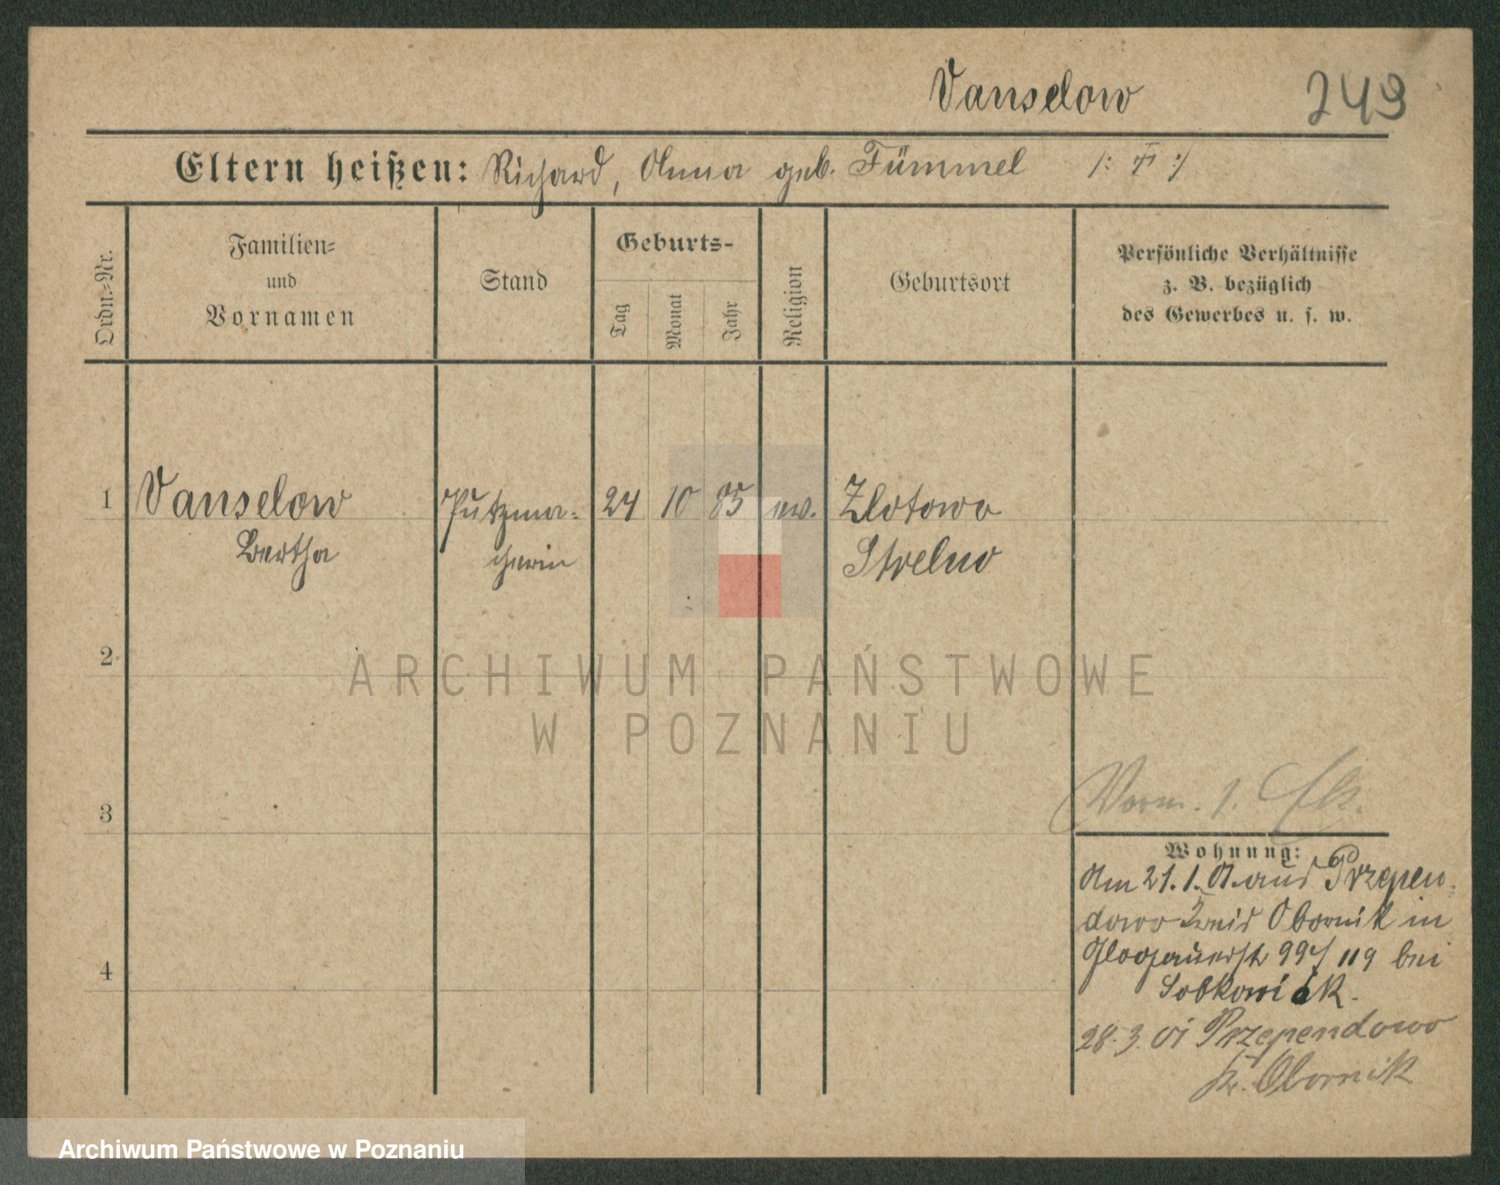 Vanselow 249
Eltern heißen: Richard, Anna geb. Fümmel
Ordn.-Nr.
Familien-
und
Vornamen
Stand
Geburts-
Tag
Monat
Jahr
Religion
Geburtsort
Persönliche Verhältnisse
z. B. bezüglich
des Gewerbes u. s. w.
1 Vanselow Putzma- 24 10 85 ev. Zlotowo
Bertha cherin Strelno
2
ARCHIWUM PAŃSTWOWE
W POZNANIU
3
4
Wohnung:
Am 21.1. 01. aus Przepen-
dowo Kreis Obornik in
Glogauerstr 99/119 bei
Sobkowiak.
28.3.01 Przependowo
Kr. Obornik
Archiwum Państwowe w Poznaniu